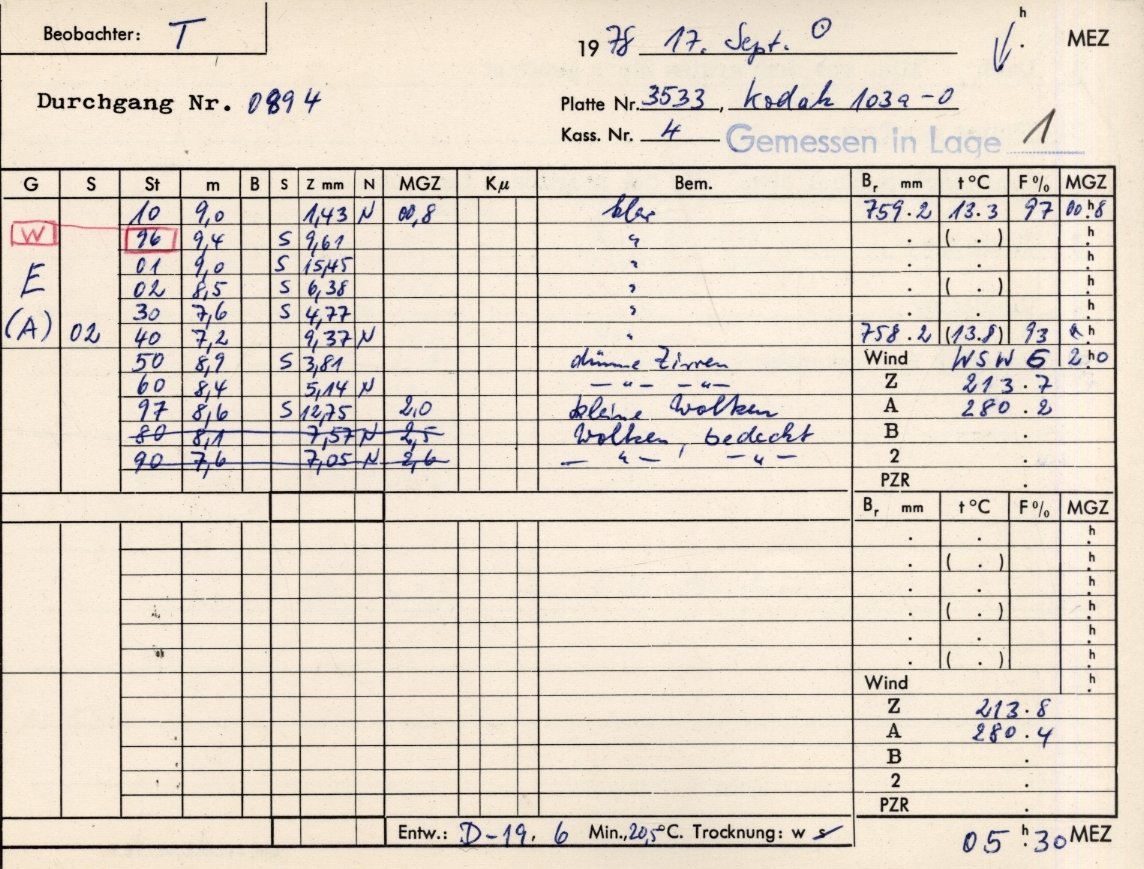 Beobachter: T
1978 17. Sept. h . MEZ
Durchgang Nr. 0894
Platte Nr. 3533, Kodak 103a-O
Kass. Nr. 4 Gemessen in Lage 1
G S St m B S Z mm N MGZ Kμ Bem. Br mm t °C F % MGZ
10 9,0 1,43 N 00,8 klar 759.2 13.3 97 00.h8
W 96 9,4 S 9,61 " . ( . ) .h
01 9,0 S 15,45 " . . .h
E 02 8,5 S 6,38 " . ( . ) .h
30 7,6 S 4,77 " . . .h
(A) 02 40 7,2 9,37 N " 758.2 (13.8) 93 h
50 8,9 S 3,81 dünne Zirren Wind WSW 6 2.h0
60 8,4 5,14 N — " — — " — Z 213.7
97 8,6 S 12,75 2,0 kleine Wolken A 280.2
80 8,1 7,57 N 2,5 Wolken, bedeckt B .
90 7,6 7,05 N 2,6 — " — — " — 2 .
PZR .
Br mm t °C F % MGZ
. . .h
. ( . ) .h
. . .h
. ( . ) .h
. . .h
. ( . ) .h
Wind .h
Z 213.8
A 280.4
B .
2 .
PZR .
Entw.: D-19. 6 Min., 20,5°C. Trocknung: w s
05 h.30 MEZ